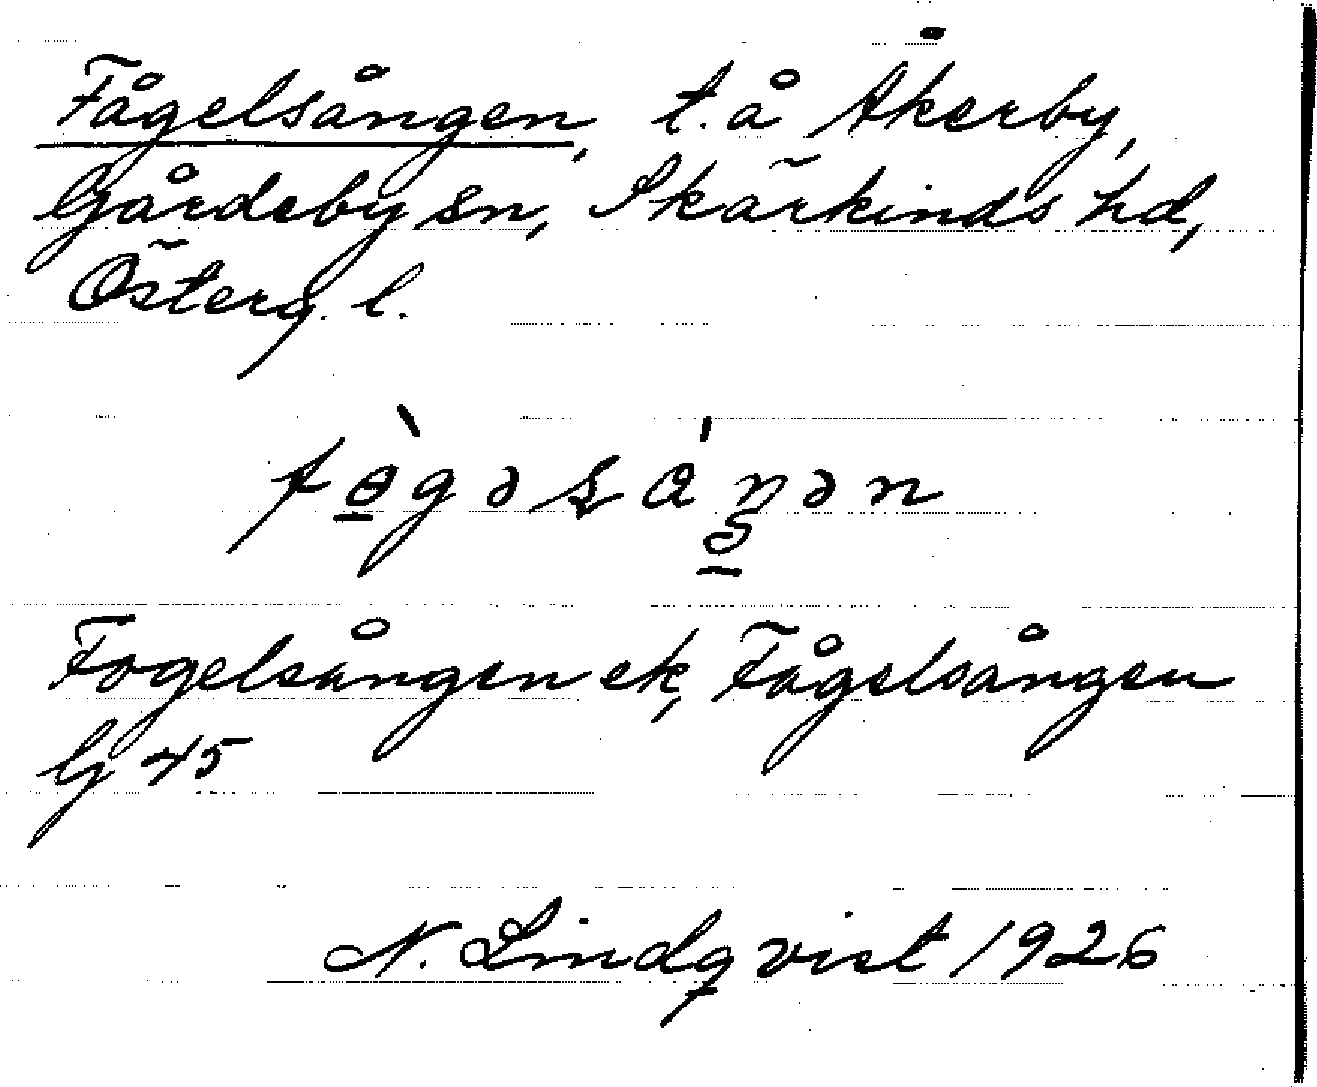 Fågelsången, t. å Åkerby,
Gårdeby sn, Skärkinds hd,
Österg. l.
fɵ̀gəsáŋən
Fogelsången ek, Fågelsången
G 45
N. Lindqvist 1926